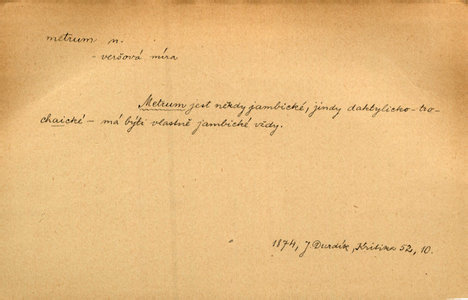 metrum n.
- veršová míra
Metrum jest někdy jambické, jindy daktylicko-tro-
chaické – má býti vlastně jambické vždy.
1874, J. Durdík, Kritika 52, 10.